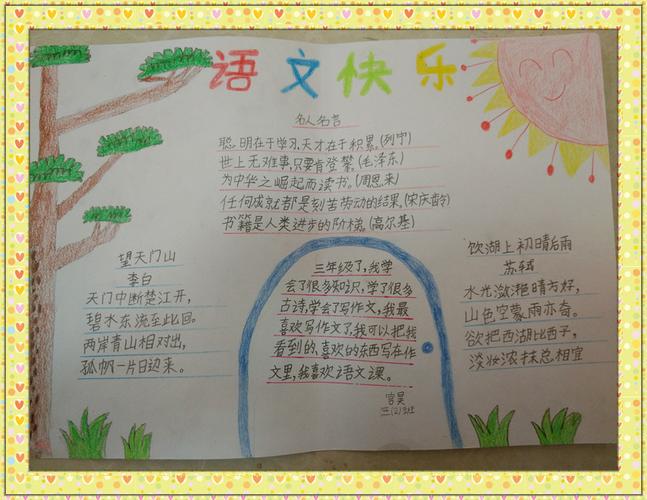 语文快乐
名人名言
聪明在于学习,天才在于积累。(列宁)
世上无难事,只要肯登攀。(毛泽东)
为中华之崛起而读书。(周恩来)
任何成就都是刻苦劳动的结果。(宋庆龄)
书籍是人类进步的阶梯。(高尔基)
望天门山
李白
天门中断楚江开,
碧水东流至此回。
两岸青山相对出,
孤帆一片日边来。
三年级了,我学
会了很多知识,学了很多
古诗,学会了写作文,我最
喜欢写作文了,我可以把我
看到的、喜欢的东西写在作
文里,我喜欢语文课。
宫昊
三(2)班
饮湖上初晴后雨
苏轼
水光潋滟晴方好,
山色空蒙雨亦奇。
欲把西湖比西子,
淡妆浓抹总相宜